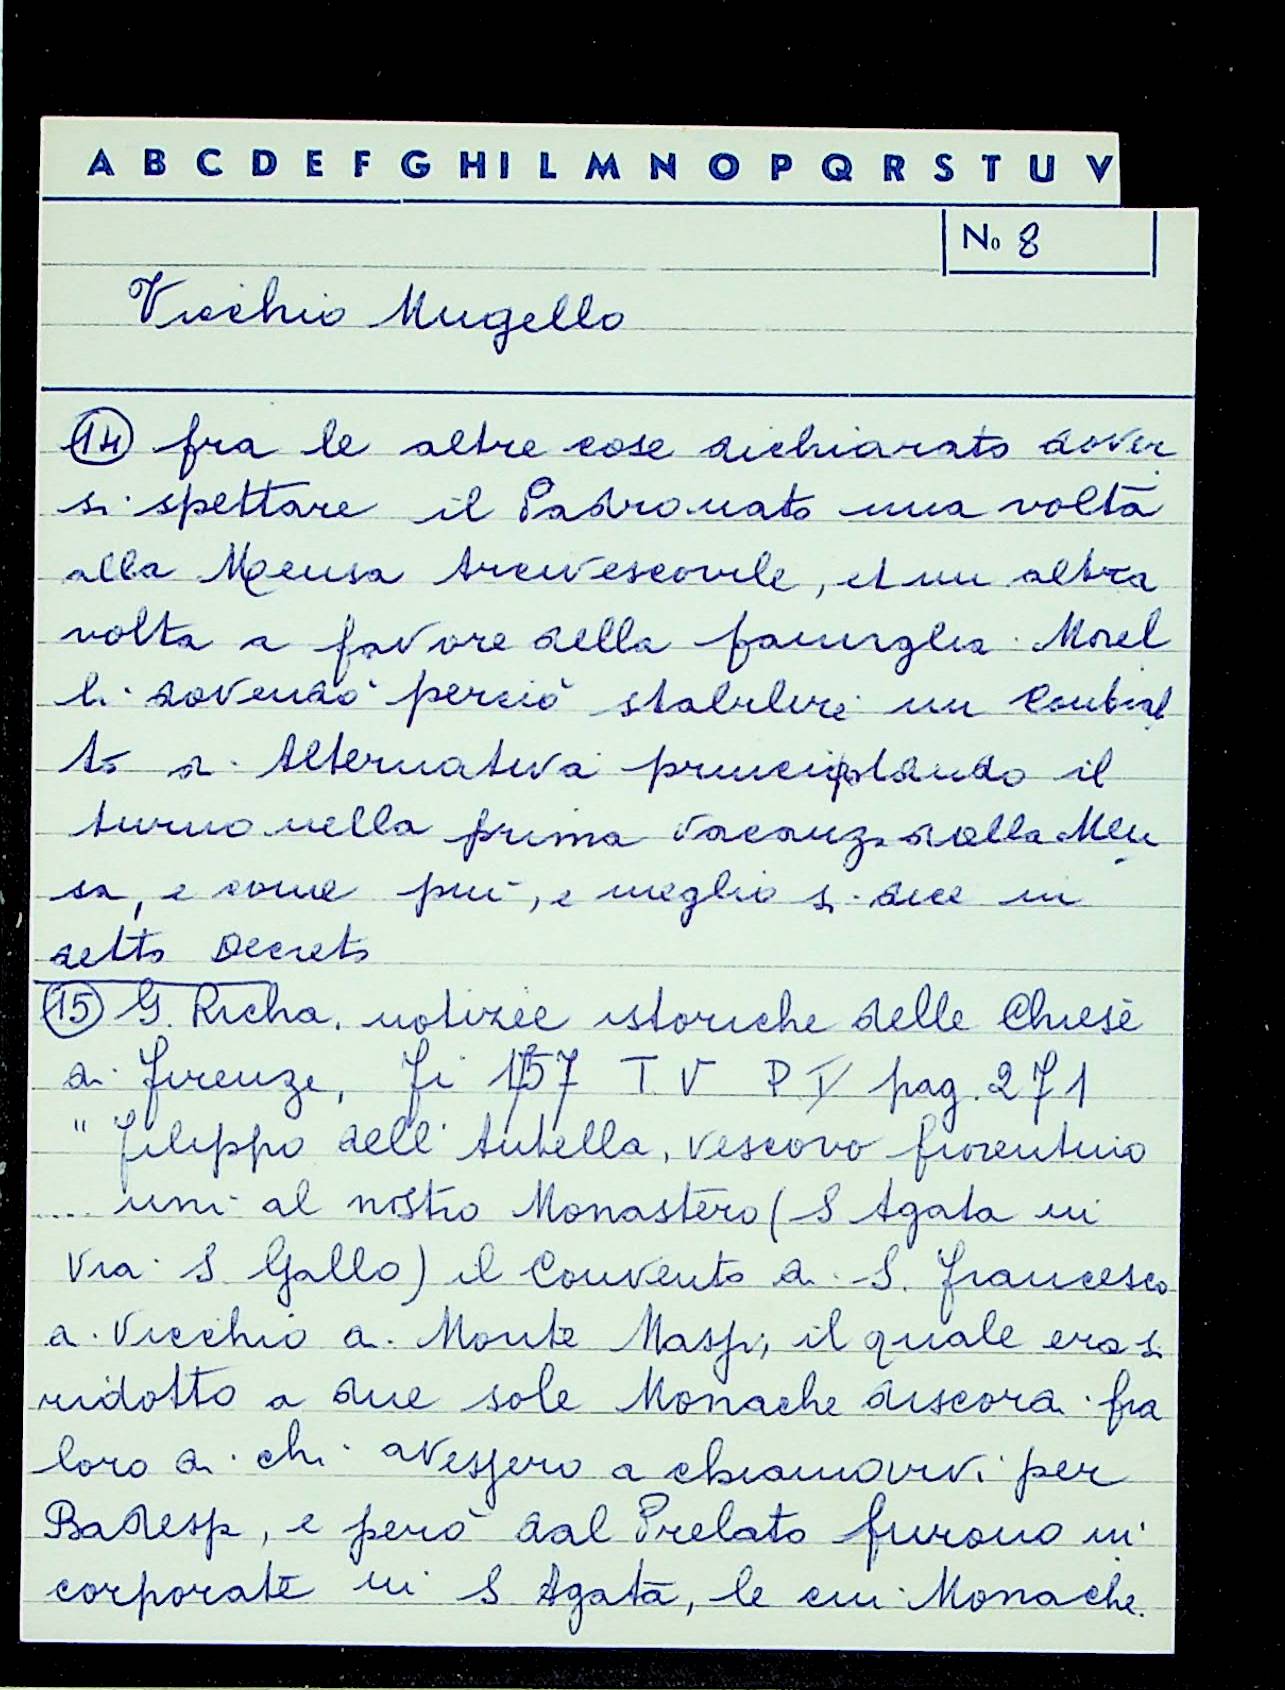 A B C D E F G H I L M N O P Q R S T U V
No 8
Vicchio Mugello
14 fra le altre cose dichiarato dover
si spettare il Padronato una volta
alla Mensa Arcivescovile, et un altra
volta a favore della famiglia Morel
li dovendo perciò stabilire un Contrat
to a Alternativa principiando il
turno nella prima vacanza dalla Men
sa, e come più, e meglio si dice in
detto Decreto
15 G. Richa, notizie istoriche delle Chiese
di Firenze, Fi 1757 T. V P. V pag. 271
" Filippo dell' Antella, Vescovo fiorentino
.... unì al nostro Monastero (S Agata in
Via S. Gallo) il Convento di S. Francesco
a Vicchio a Monte Massi, il quale erasi
ridotto a due sole Monache discora fra
loro di chi avessero a chiamarvi per
Badessa, e però dal Prelato furono in
corporate in S Agata, le cui Monache